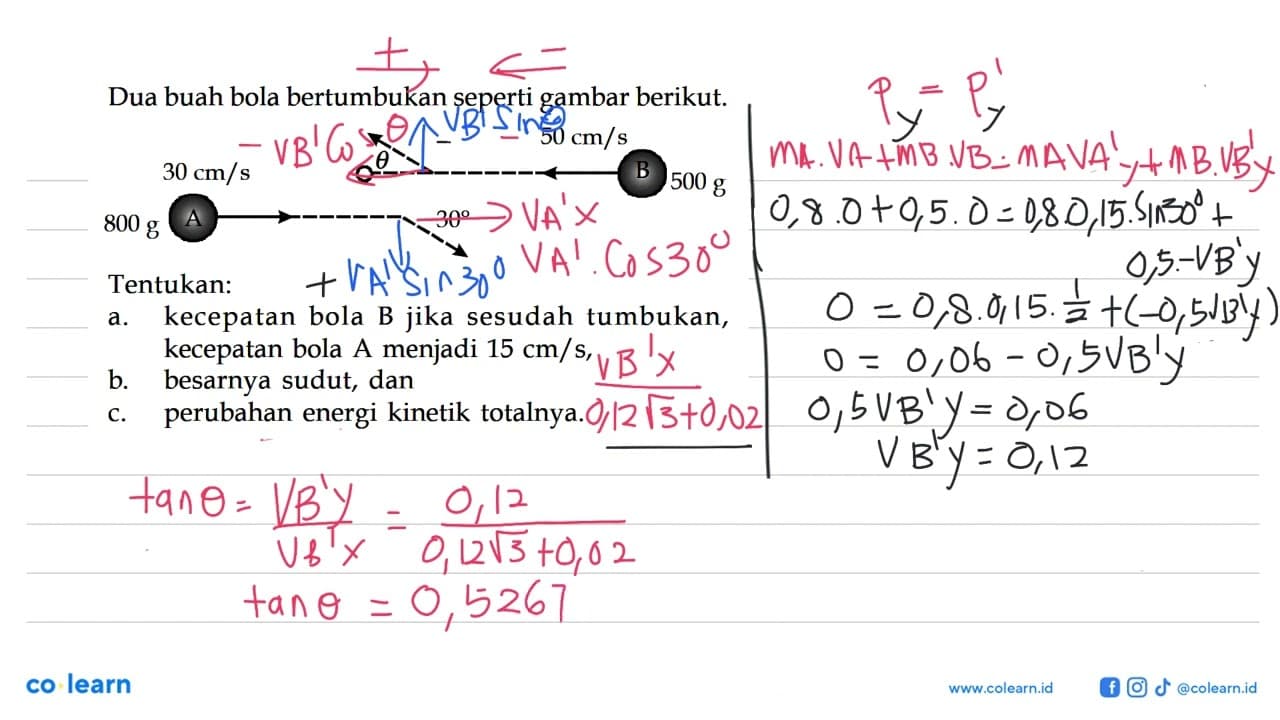 + −
Dua buah bola bertumbukan seperti gambar berikut.
− VB'Cos θ VB'Sinθ
50 cm/s
θ
30 cm/s
B 500 g
800 g A
30° VA'X
VA'.Cos30⁰
+ VA'Sin30⁰
Tentukan:
a. kecepatan bola B jika sesudah tumbukan,
kecepatan bola A menjadi 15 cm/s,
b. besarnya sudut, dan
c. perubahan energi kinetik totalnya.
VB'X
0,12√3+0,02
tanθ = VB'Y / VB'X = 0,12 / 0,12√3+0,02
tanθ = 0,5267
Py = Py'
MA.VA+MB.VB=MAVA'y+MB.VB'y
0,8.0+0,5.0=0,8.0,15.Sin30⁰+
0,5.-VB'y
0 = 0,8.0,15.1/2+(-0,5VB'y)
0 = 0,06 - 0,5VB'y
0,5VB'y = 0,06
VB'y = 0,12
co learn
www.colearn.id
@colearn.id